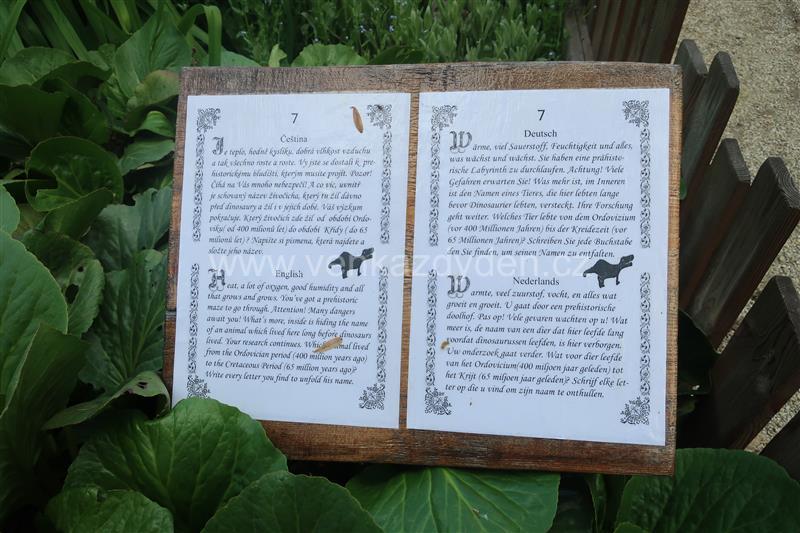 7
Čeština
Je teplo, hodně kyslíku, dobrá vlhkost vzduchu
a tak všechno roste a roste. Vy jste se dostali k pre-
historickému bludišti, kterým musíte projít. Pozor!
Číhá na Vás mnoho nebezpečí! A co víc, uvnitř
je schovaný název živočicha, který tu žil dávno
před dinosaury a žil i v jejich době. Váš výzkum
pokračuje. Který živočich zde žil od období Ordo-
viku( od 400 milionů let) do období Křídy ( do 65
milionů let)? Napište si písmena, která najdete a
složte jeho název.
English
Heat, a lot of oxygen, good humidity and all
that grows and grows. You've got a prehistoric
maze to go through. Attention! Many dangers
await you! What's more, inside is hiding the name
of an animal which lived here long before dinosaurs
lived. Your research continues. Which animal lived
from the Ordovician period (400 million years ago)
to the Cretaceous Period (65 million years ago)?
Write every letter you find to unfold his name.
7
Deutsch
Wärme, viel Sauerstoff, Feuchtigkeit und alles,
was wächst und wächst. Sie haben eine prähisto-
rische Labyrinth zu durchlaufen. Achtung! Viele
Gefahren erwarten Sie! Was mehr ist, im Inneren
ist den Namen eines Tieres, die hier lebten lange
bevor Dinosaurier lebten, versteckt. Ihre Forschung
geht weiter. Welches Tier lebte von dem Ordovizium
(vor 400 Millionen Jahren) bis der Kreidezeit (vor
65 Millionen Jahren)? Schreiben Sie jede Buchstabe
den Sie finden, um seinen Namen zu entfalten.
Nederlands
Warmte, veel zuurstof, vocht, en alles wat
groeit en groeit. U gaat door een prehistorische
doolhof. Pas op! Vele gevaren wachten op u! Wat
meer is, de naam van een dier dat hier leefde lang
voordat dinosaurussen leefden, is hier verborgen.
Uw onderzoek gaat verder. Wat voor dier leefde
van het Ordovicium(400 miljoen jaar geleden) tot
het Krijt (65 miljoen jaar geleden)? Schrijf elke let-
ter op die u vind om zijn naam te onthullen.
www.vonkazdyden.cz